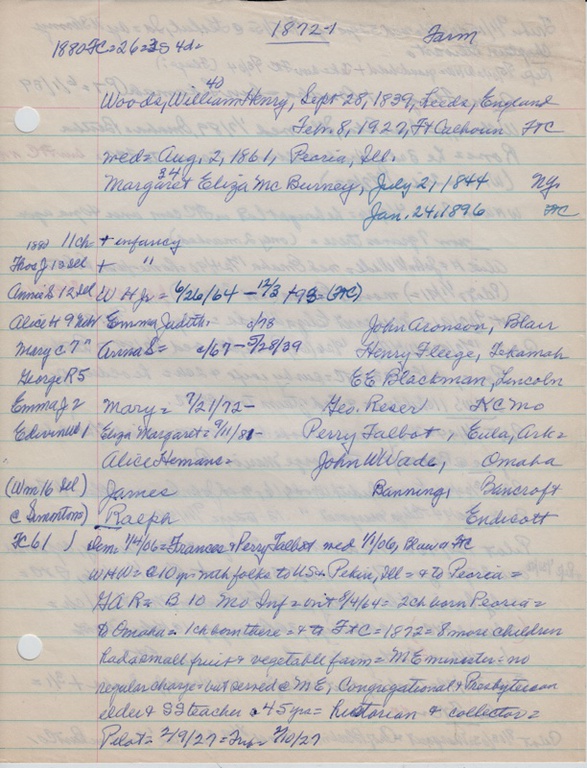 1872-1
1880 FC=26=35 4d=
Farm
40
Woods, William Henry, Sept 28, 1839, Leeds, England
Febr. 8, 1927, Ft Calhoun FC
med= Aug. 2, 1861, Peoria, Ill.
34
Margaret Eliza McBurney, July 21, 1844 NY
Jan. 24, 1896 FC
1880 11ch = + infancy
Thos J 13 Ill + "
Anna S 12 Ill W H Jr = 6/26/64 - 12/3 +93= (FC)
Alice H 9 Neb Emma Judith. c/78 John Aronson, Blair
Mary C 7 " Anna S= c/67 - 5/28/39 Henry Fleege, Tekamah
George R 5 E E Blackman, Lincoln
Emma J 2 Mary= 7/21/72- Geo. Reser KC Mo
Edwin W 1 Eliza Margaret= 9/11/81- Perry Talbot, Eula, Ark=
Alice Hemans= John W Wade, Omaha
(Wm 16 Ill) James Banning, Bancroft
c Simontons) Ralph Endicott
FC 61 1/4/06= Frances + Perry Talbot med 1/1/06, Blair + FC
WHW= c 10 yr= with folks to US= Pekin, Ill= + to Peoria=
GAR= B 10 Mo Inf= 8/4/64= 2ch born Peoria=
to Omaha= 1ch born there= + to FtC=1872= 8 more children
had a small fruit + vegetable farm= ME minister= no
regular charge= but served c ME, Congregational + Presbyterian
elder + SS teacher c 45 yrs= historian + collector=
Pilot= 2/9/27= 2/10/27